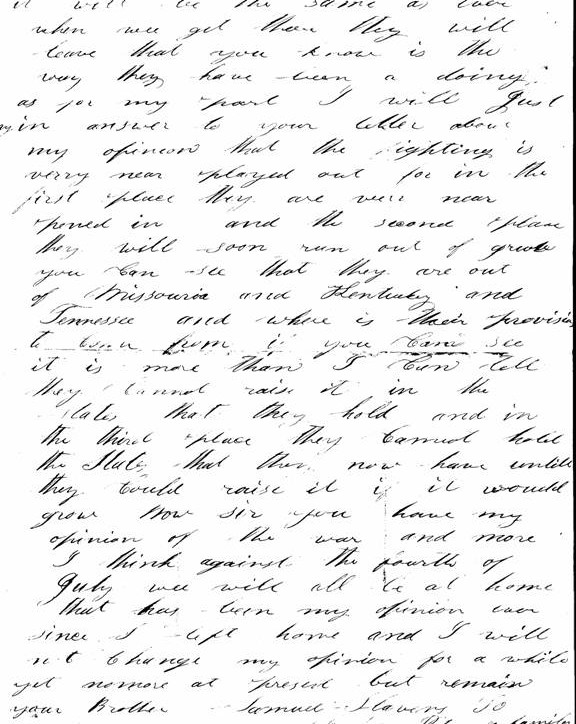 it will be the same as ever
when wee get there they will
leave that you know is the
way they have been a doing
as for my part I will Just
in answer to your letter about
my opinion that the fighting is
verry near played out for in the
first place they are verr near
pened in and the second place
they will soon run out of grube
you Can see that they are out
of Missouria and Kentucky and
Tennessee and where is their provision
to Come from if you Can see
it is more than I Can tell
they Cannot raise it in the
states that they hold and in
the third place they Cannot hold
the State that they now have untill
they Could raise it if it would
grow Now sir you have my
opinion of the war and more
I think against the fourth of
July wee will all be at home
that has been my opinion ever
since I left home and I will
not Change my opinion for a while
yet nomore at present but remain
your Brother Samuel Slavens to
family